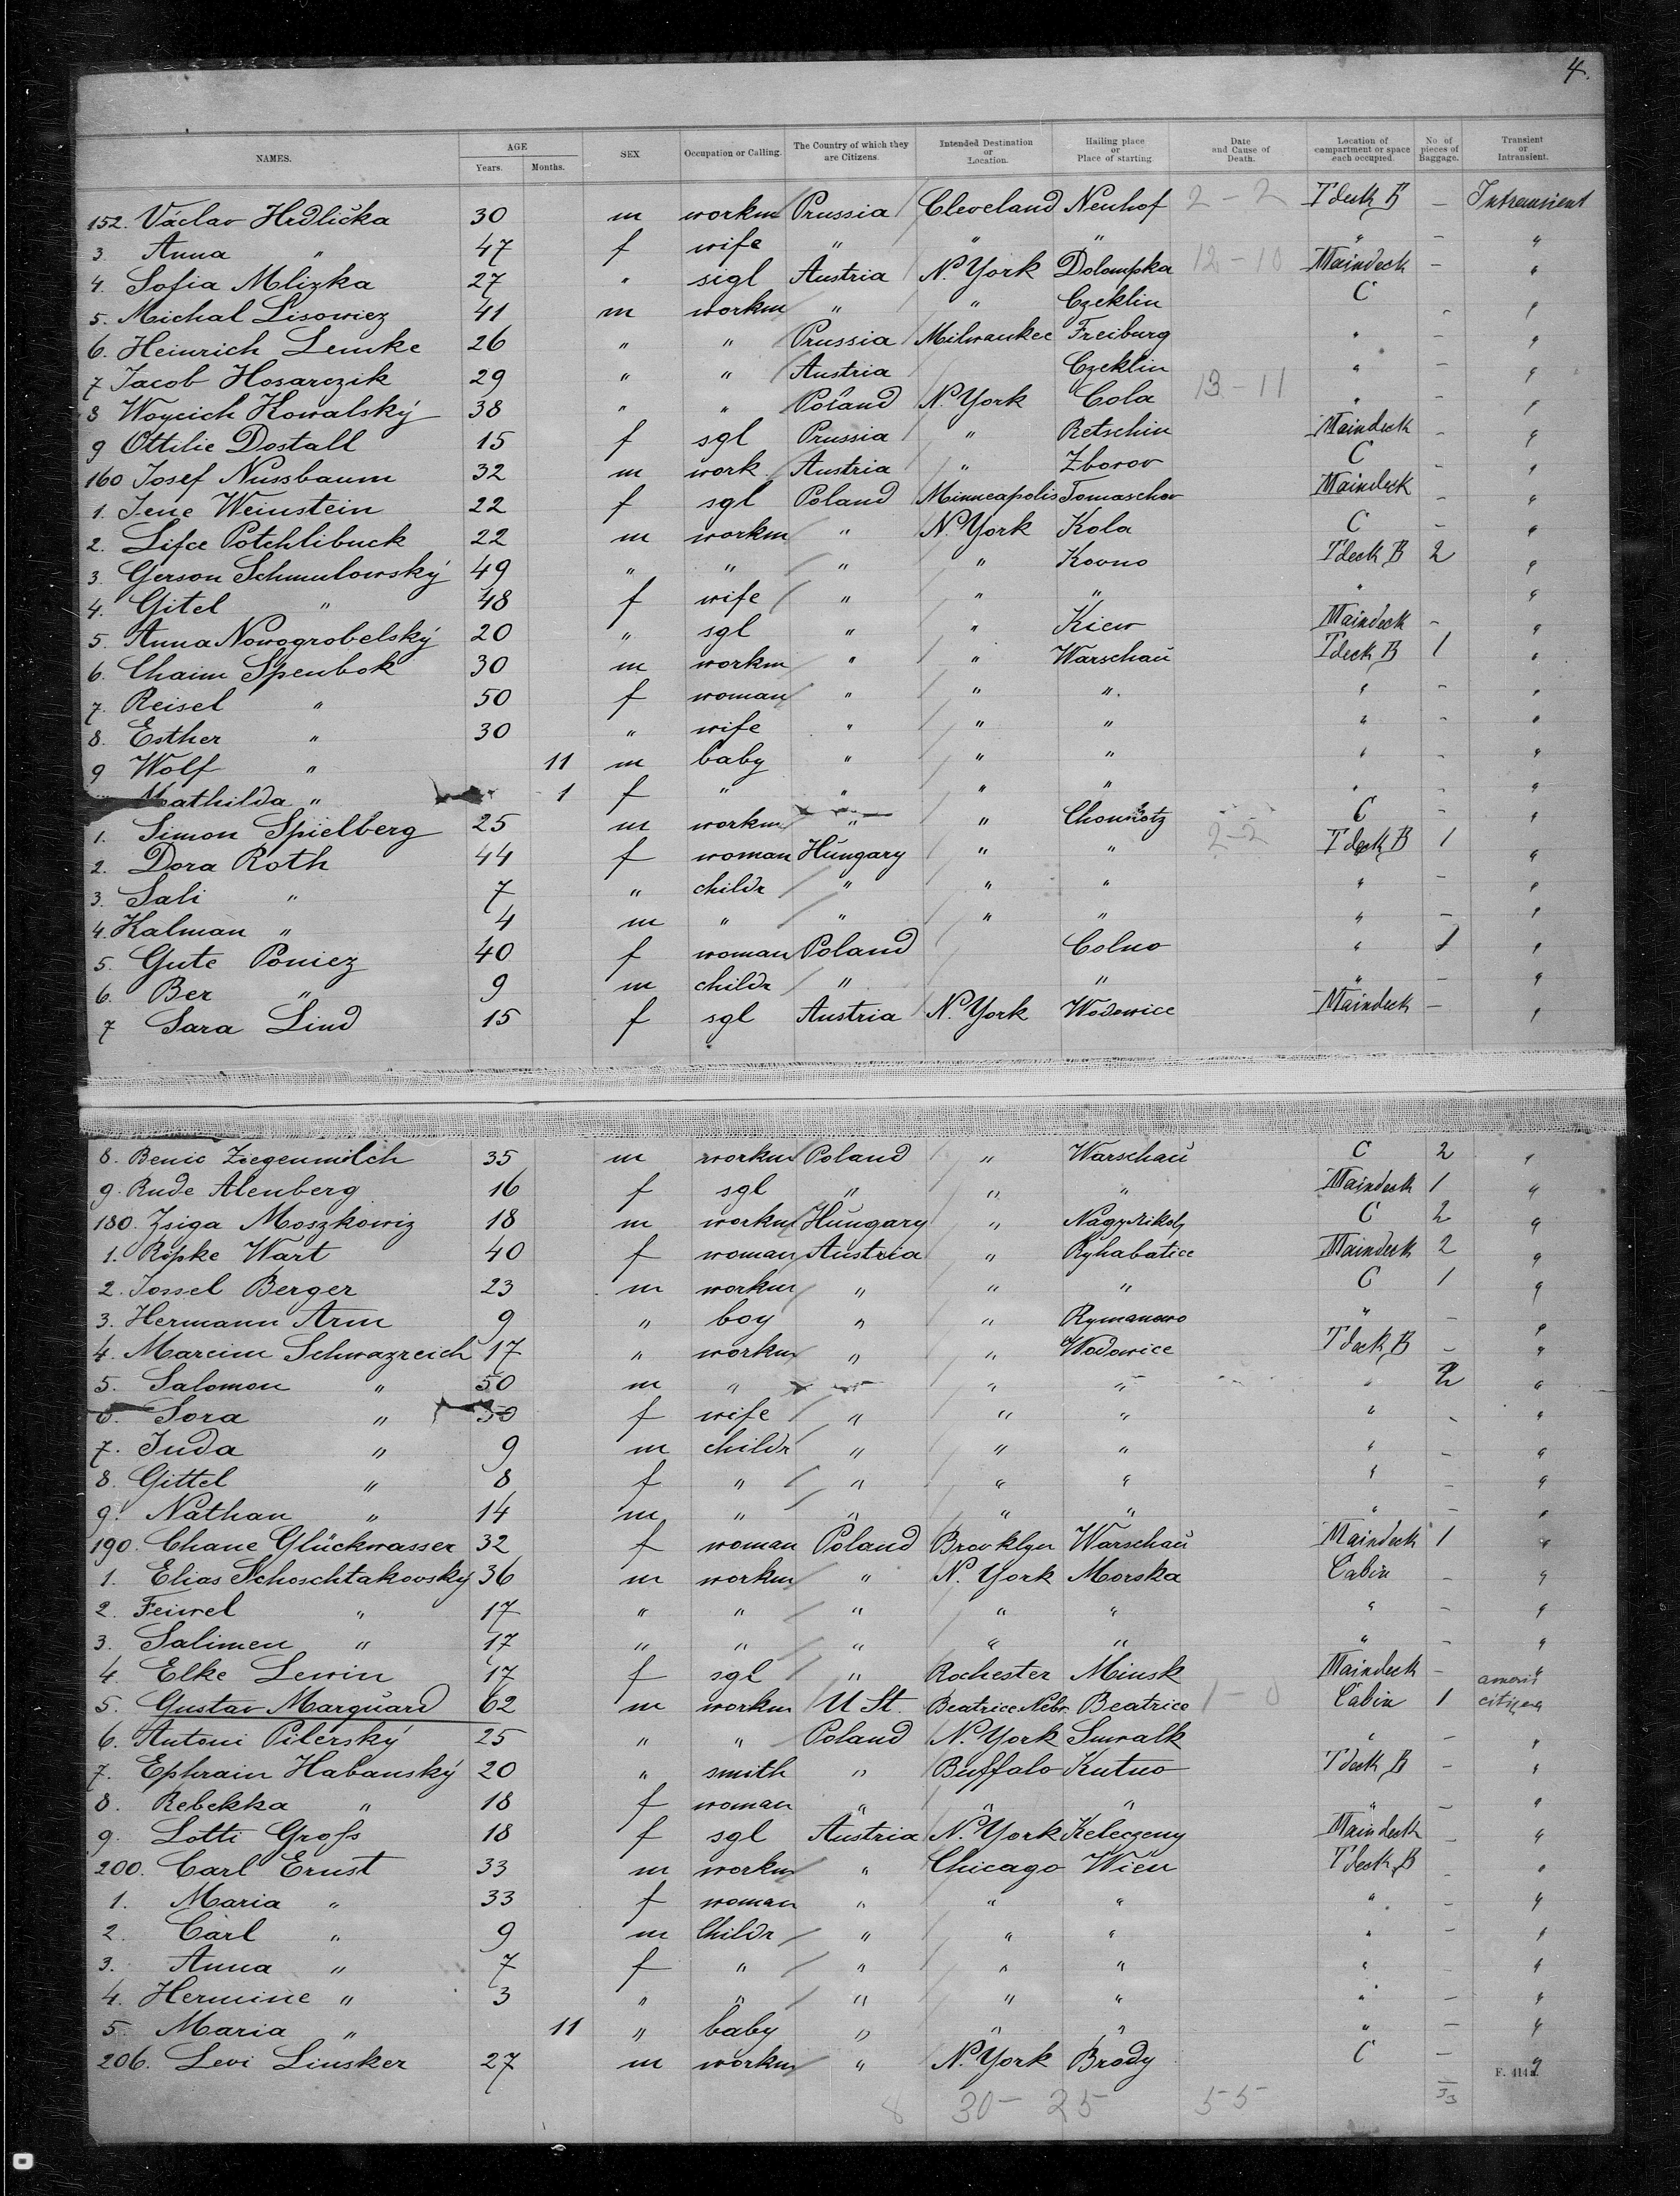 4.
NAMES. AGE Years. Months. SEX Occupation or Calling. The Country of which they are Citizens. Intended Destination or Location. Hailing place or Place of starting. Date and Cause of Death. Location of compartment or space each occupied. No. of pieces of Baggage. Transient or Intransient.
152. Václav Hrdlička 30 m workm Prussia Cleveland Neuhof 2-2 Tdeck B – Intransient
3. Anna " 47 f wife " " " " – "
4. Sofia Mlizka 27 " sigl Austria N. York 12-10 Maindeck – "
5. Michal Lisowicz 41 m workm " " Czeklin C - "
6. Heinrich Lemke 26 " " Prussia Milwaukee Freiburg " – "
7 Jacob Hosarczik 29 " " Austria Czeklin " – "
8 Woycich Kowalský 38 " " Poland N. York Cola 13-11 " - "
9 Ottilie Dostall 15 f sgl Prussia " Retschin Maindeck – "
160 Josef Nussbaum 32 m work Austria " Zborov C - "
1. Jene Weinstein 22 f sgl Poland Minneapolis Tomaschov Maindeck - "
2. Lifce Potchlibuck 22 m workm " N. York Kola C – "
3. Gerson Schmulowský 49 " " " " Kovno Tdeck B 2 "
4. Gitel " 48 f wife " " " " "
5. Anna Nowogrobelský 20 " sgl " " Kiew Maindeck - "
6. Chaim Spenbok 30 m workm " " Warschau Tdeck B 1 "
7. Reisel " 50 f woman " " " " - "
8. Esther " 30 " wife " " " " - "
9 Wolf " 11 m baby " " " " - "
Mathilda " 1 f " " " " " - "
1. Simon Spielberg 25 m workm " " C - "
2. Dora Roth 44 f woman Hungary " " 2-2 Tdeck B 1 "
3. Sali " 7 " childr " " " " - "
4. Kalman " 4 m " " " " " – "
5. Gute Poniez 40 f woman Poland Colno " 1 "
6. Ber " 9 m childr " " " - "
7 Sara Lind 15 f sgl Austria N. York Wodowice Maindeck – "
8. Benic Ziegenmilch 35 m workm Poland " Warschau C 2 "
9. Rude Alenberg 16 f sgl " " " Maindeck 1 "
180. Zsiga Moszkowiz 18 m workm Hungary " C 2 "
1. Ripke Wart 40 f woman Austria " Ryhabatice Maindeck 2 "
2. Jossel Berger 23 m workm " " " C 1 "
3. Hermann Arm 9 " boy " " Rymanowo " - "
4. Marcim Schwazreich 17 " workm " " Wodowice Tdeck B - "
5. Salomon " 50 m " " " " 2 "
6. Sora " 50 f wife " " " " - "
7. Juda " 9 m childr " " " " – "
8. Gittel " 8 f " " " " " - "
9. Nathan " 14 m " " " " " – "
190. Chane Glückwasser 32 f woman Poland Brooklyn Warschau Maindeck 1 "
1. Elias Schoschtakovsky 36 m workm " N. York Morska Cabin - "
2. Feiwel " 17 " " " " " " - "
3. Salimen " 17 " " " " " " - "
4. Elke Lewin 17 f sgl " Rochester Minsk Maindeck - "
5. Gustav Marquard 62 m workm U St. Beatrice Nebr. Beatrice 1-0 Cabin 1 americ citizen
6. Antoni Pilerský 25 " " Poland N. York Suwalk " - "
7. Ephrain Habanský 20 " smith " Buffalo Kutno Tdeck B - "
8. Rebekka " 18 f woman " " " " - "
9. Lotti Groß 18 f sgl Austria N. York Keleczeny Maindeck - "
200. Carl Ernst 33 m workm " Chicago Wien Tdeck B - "
1. Maria " 33 f woman " " " " - "
2. Carl " 9 m Childr " " " " - "
3. Anna " 7 f " " " " " - "
4. Hermine " 3 " " " " " " – "
5. Maria " 11 " baby " " " " – "
206. Levi Linsker 27 m workm " N. York Brody C – "
8 30-25 5-5 33